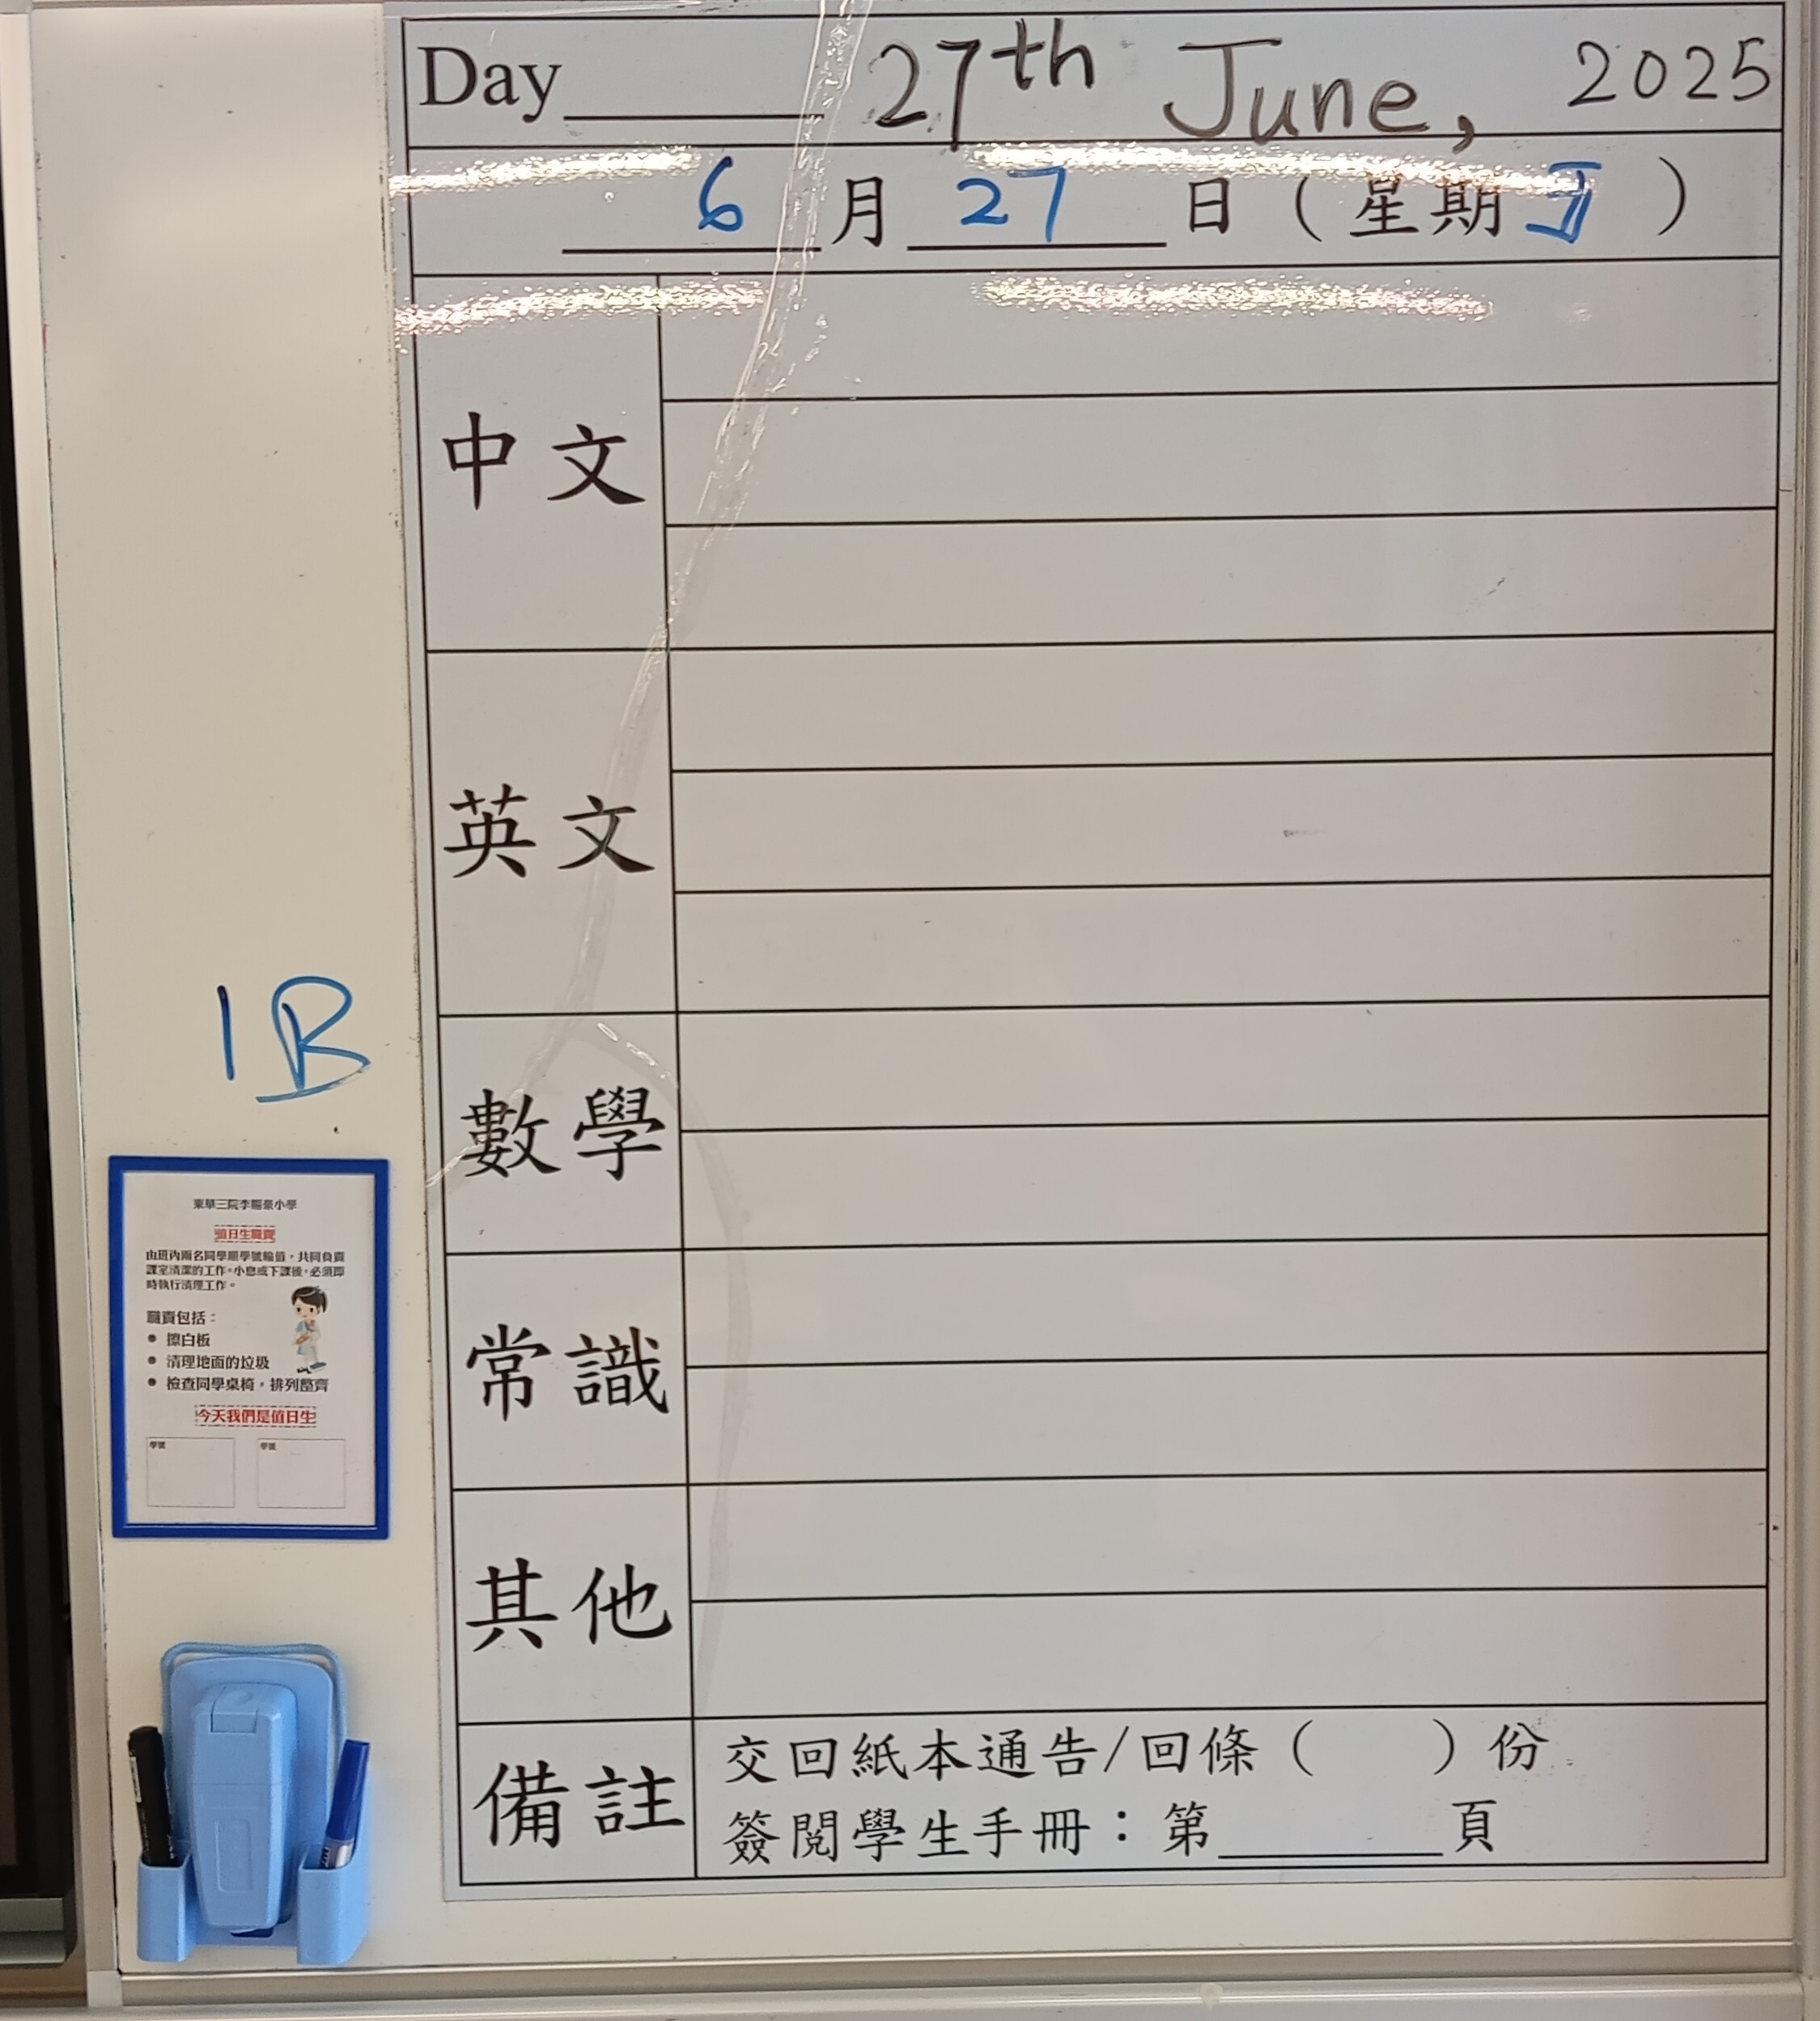 Day______ 27th June, 2025
6月27日（星期五）
中文
英文
數學
常識
其他
備註
交回紙本通告/回條（　　）份
簽閱學生手冊：第______頁
1B
東華三院李賜豪小學
值日生職責
由班內兩名同學順學號輪值，共同負責
課室清潔的工作。小息或下課後，必須即
時執行清理工作。
職責包括：
● 擦白板
● 清理地面的垃圾
● 檢查同學桌椅，排列整齊
今天我們是值日生
學號　學號